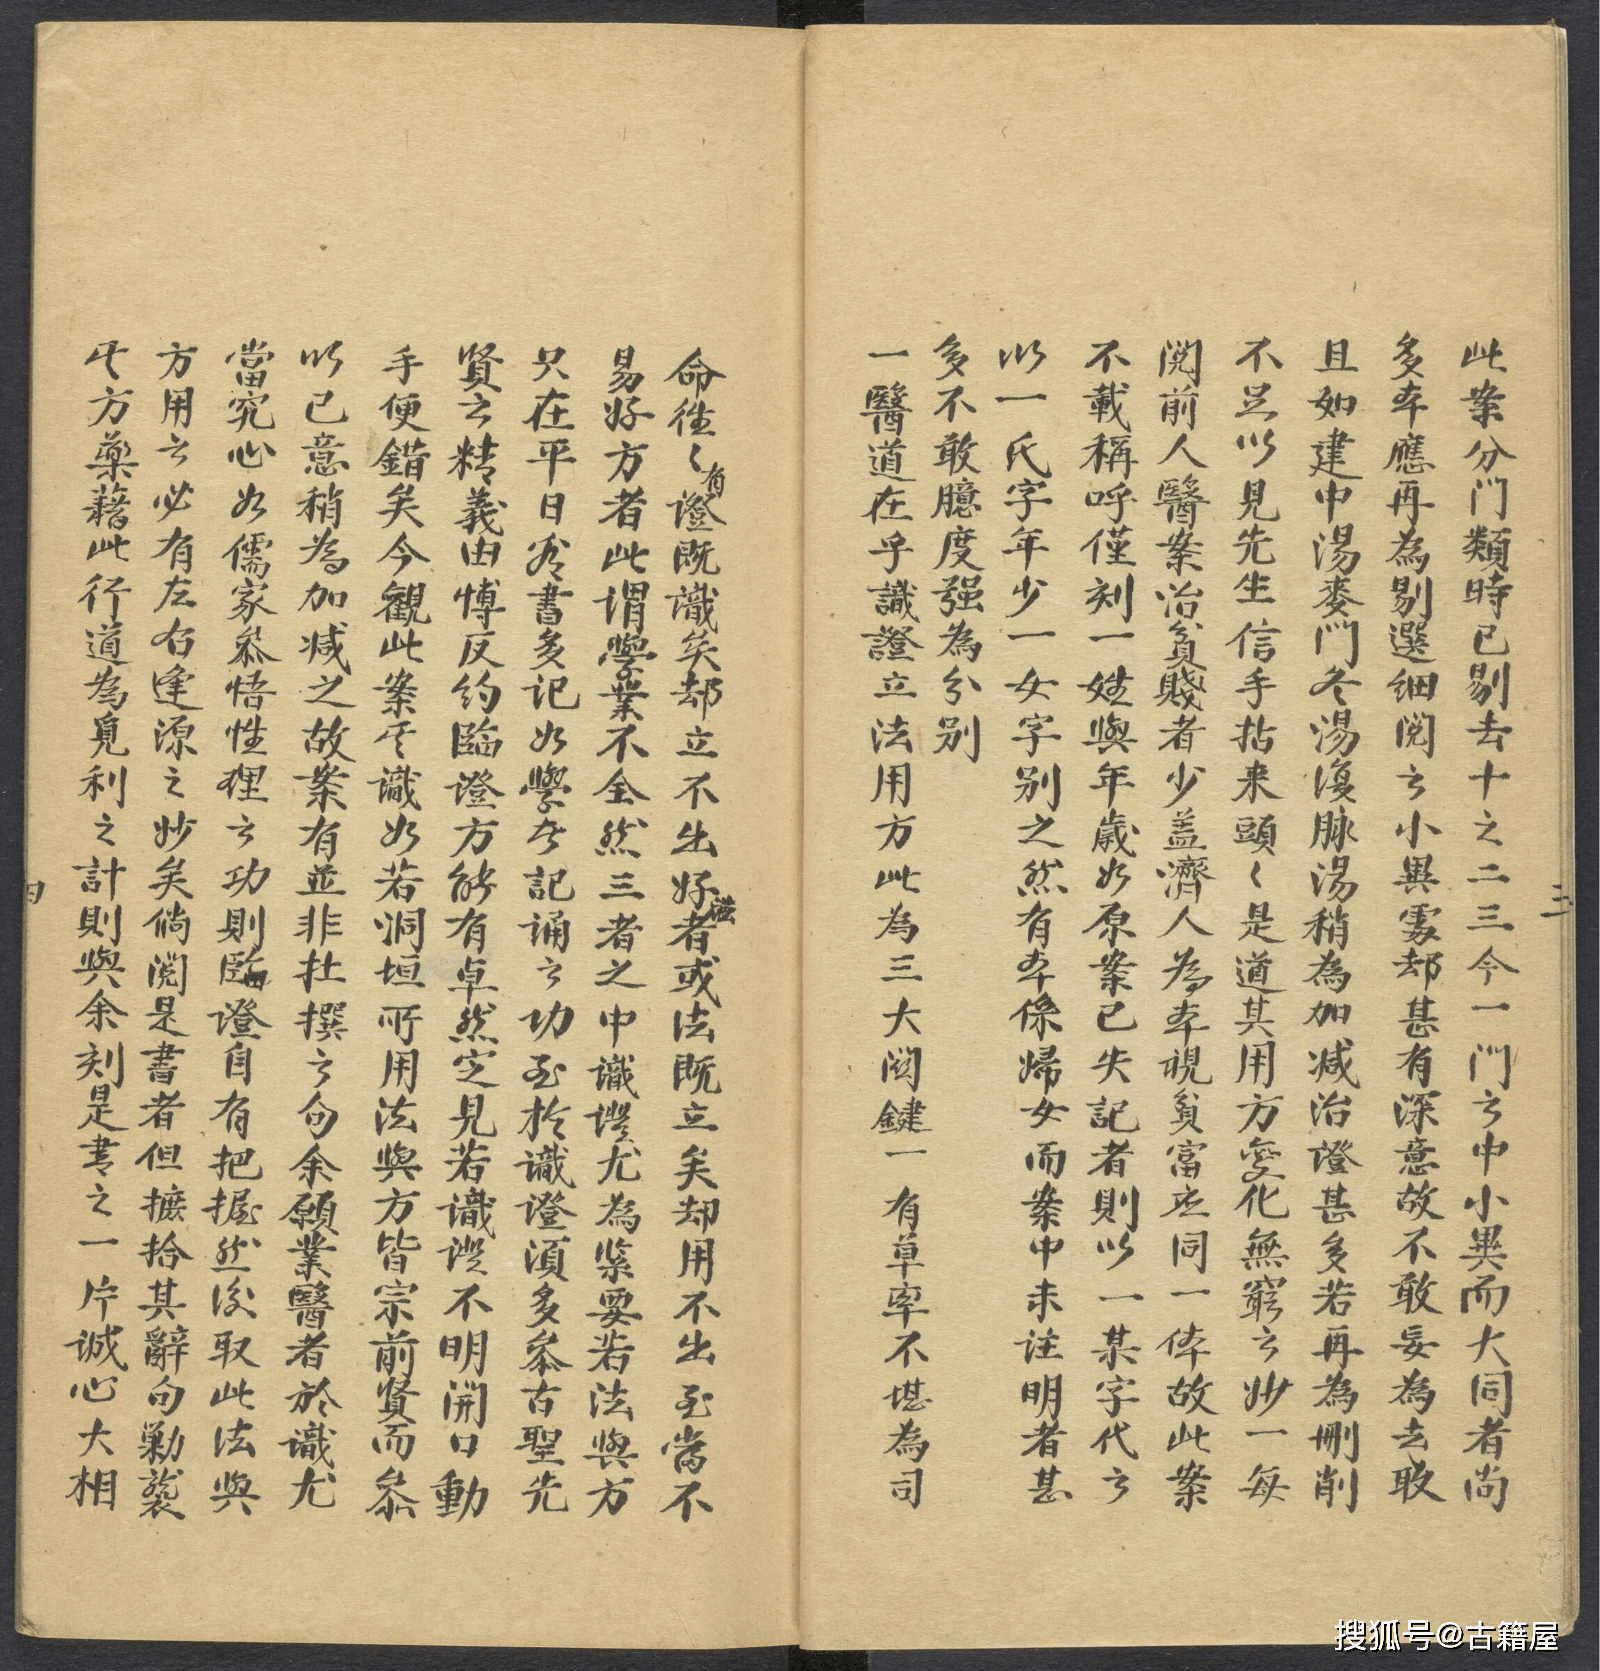 三
此案分門類時已剔去十之二三今一門之中小異而大同者尚
多本應再為剔選細閱之小異處却甚有深意故不敢妄為去取
且如建中湯麥門冬湯復脉湯稍為加減治證甚多若再為刪削
不足以見先生信手拈来頭〻是道其用方變化無窮之妙一每
閱前人醫案治貧賤者少盖濟人為本視貧富應同一体故此案
不載稱呼僅刻一姓與年歲如原案已失記者則以一某字代之
以一氏字年少一女字别之然有本係婦女而案中未註明者甚
多不敢臆度强為分别
一醫道在乎識證立法用方此為三大関鍵一有草率不堪為司
命往〻有證既識矣却立不出好法者或法既立矣却用不出至當不
易好方者此謂學業不全然三者之中識證尤為紧要若法與方
只在平日看書多記如學者記誦之功至於識證須多叅古聖先
賢之精義由博反約臨證方能有卓然定見若識證不明開口動
手便錯矣今觀此案其識如若洞垣所用法與方皆宗前賢而叅
以已意稍為加减之故案有並非杜撰之句余願業醫者於識尤
當究心如儒家叅悟性理之功則臨證自有把握然後取此法與
方用之必有左右逢源之妙矣倘閱是書者但摭拾其辭句剿襲
其方藥藉此行道為覓利之計則與余刻是書之一片誠心大相
四
搜狐号@古籍屋